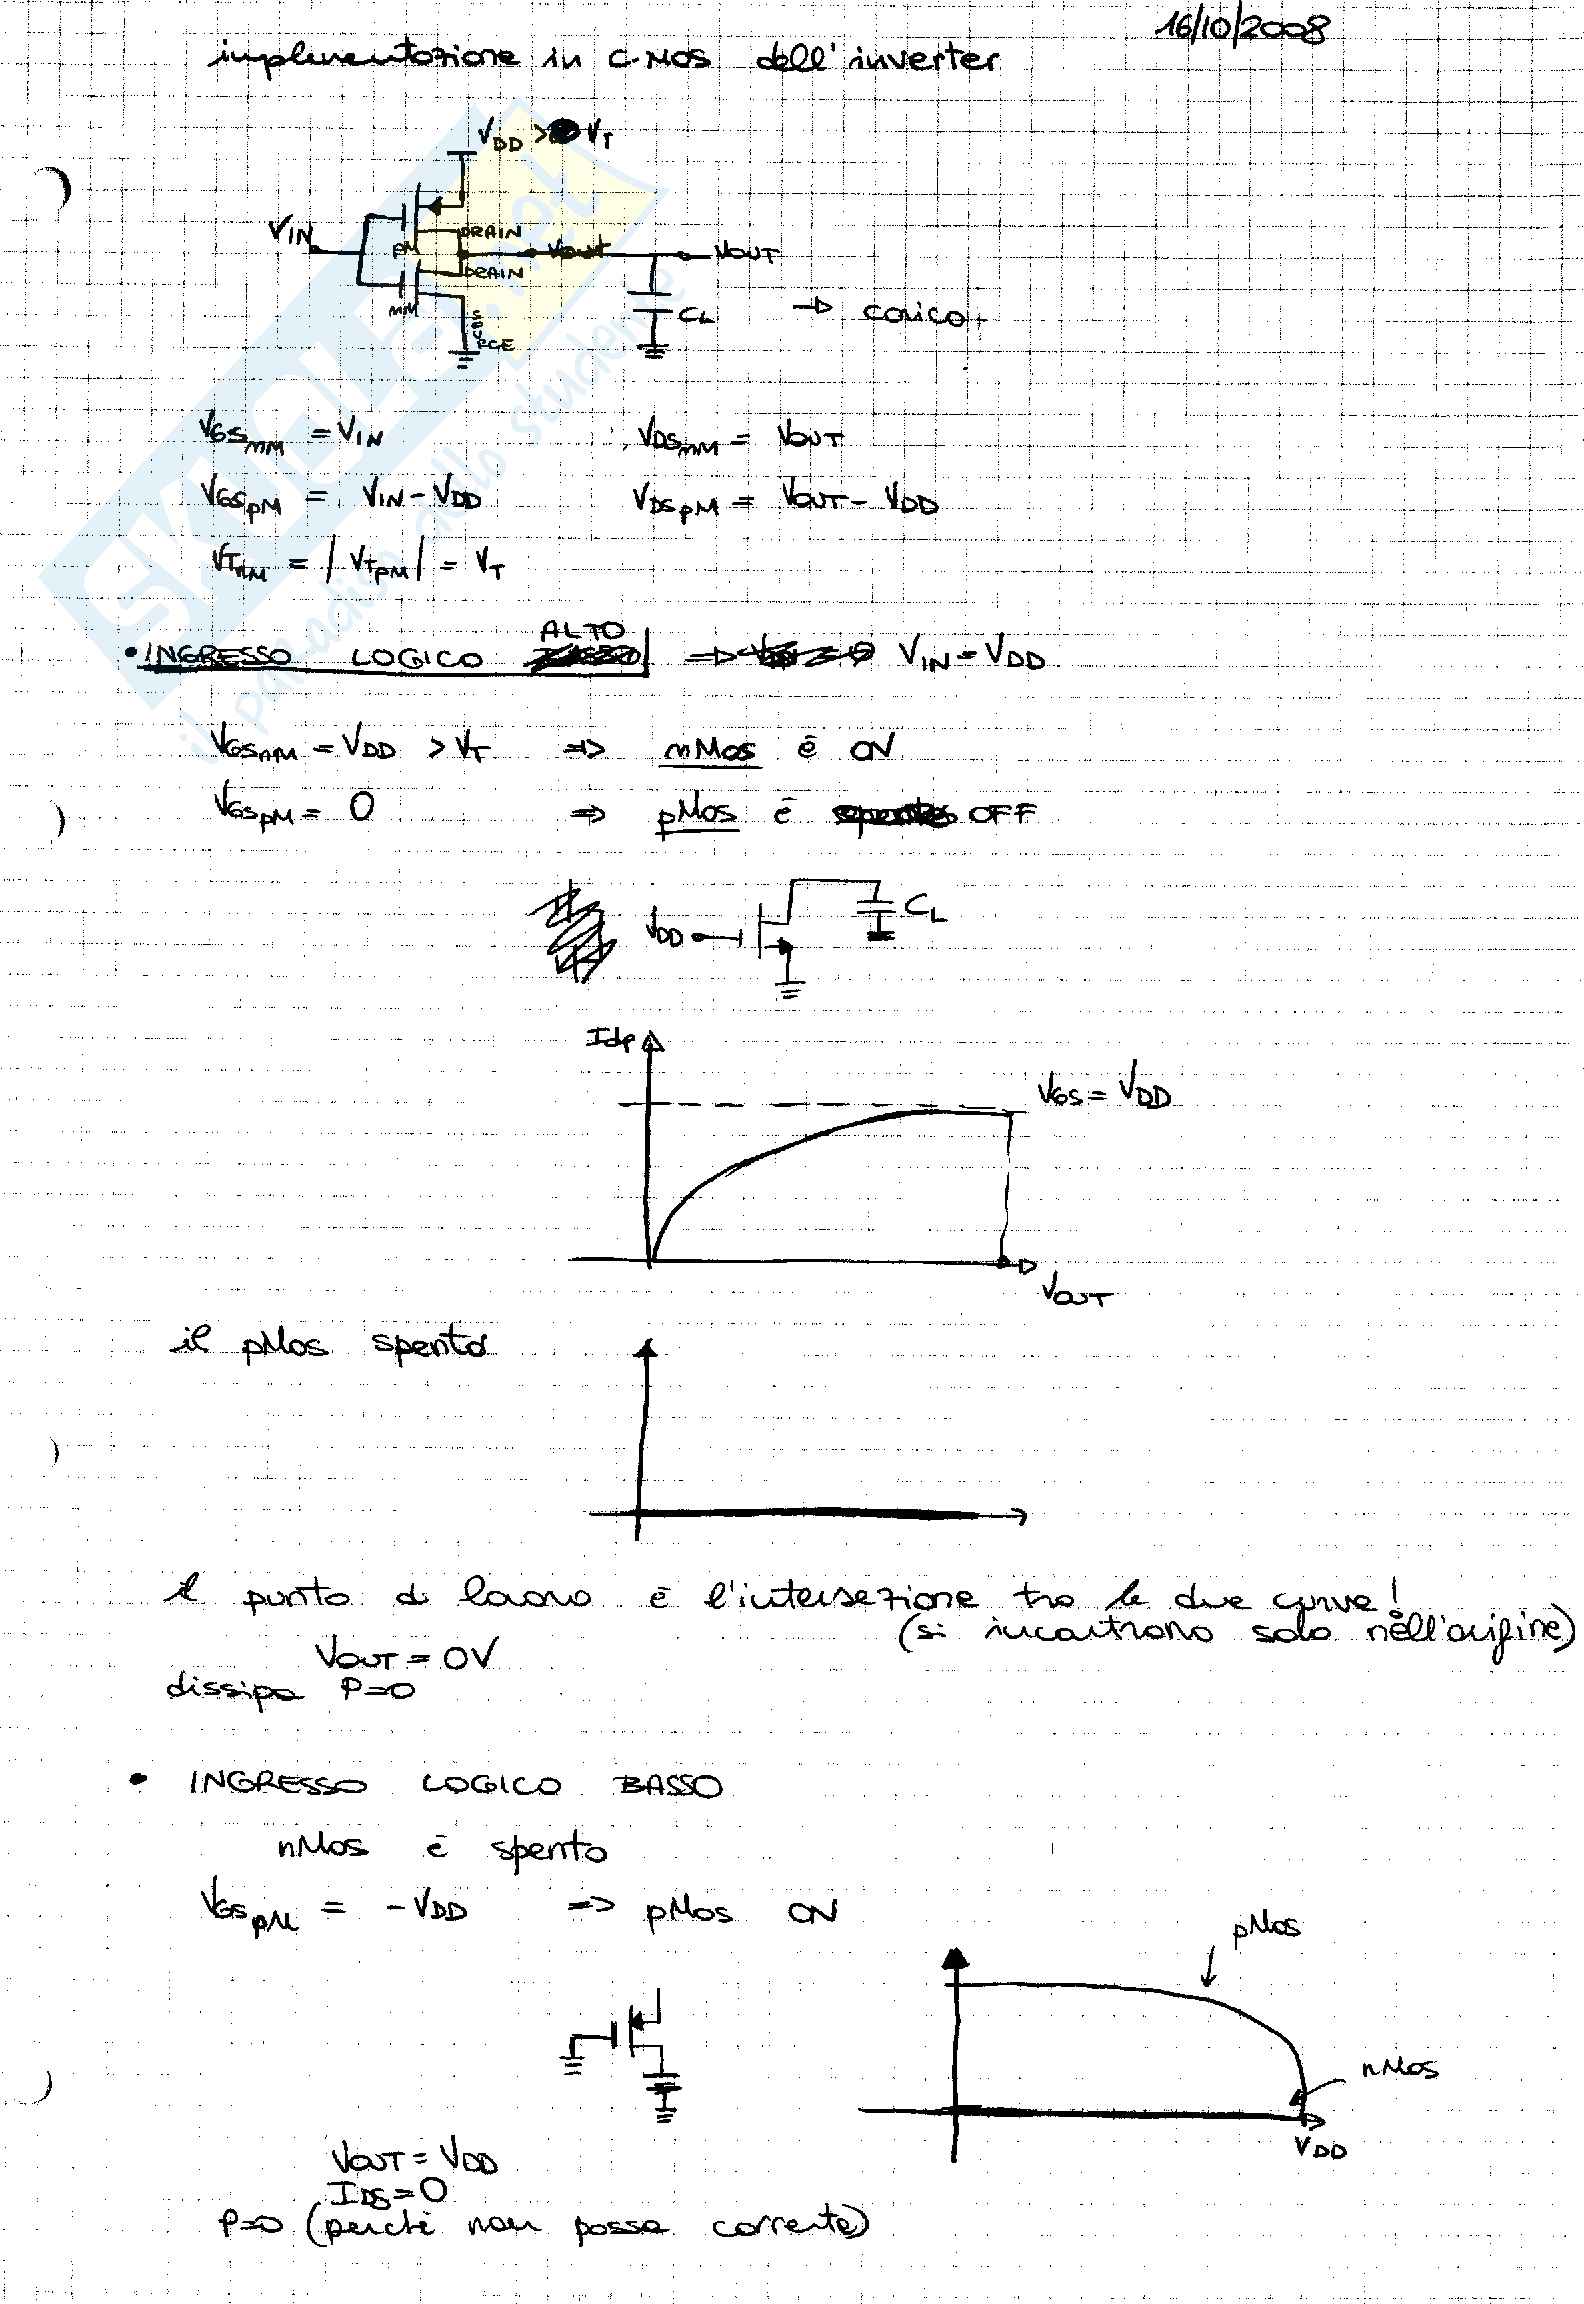 16/10/2008
implementazione in C-MOS dell'inverter
VDD > VT
VIN
DRAIN
pM
VOUT
VOUT
DRAIN
nM
SOURCE
CL
→ carico
VGSnM = VIN
VDSnM = VOUT
VGSpM = VIN - VDD
VDSpM = VOUT - VDD
VTnM = |VTpM| = VT
• INGRESSO LOGICO ALTO ⇒ VIN = VDD
VGSnM = VDD > VT ⇒ nMos è ON
VGSpM = 0 ⇒ pMos è OFF
VDD
CL
Idp
VGS = VDD
VOUT
il pMos spento
il punto di lavoro è l'intersezione tra le due curve!
(si incontrano solo nell'origine)
VOUT = 0V
dissipa P=0
• INGRESSO LOGICO BASSO
nMos è spento
VGSpM = -VDD ⇒ pMos ON
pMos
nMos
VDD
VOUT = VDD
IDS = 0
P=0 (perchè non passa corrente)